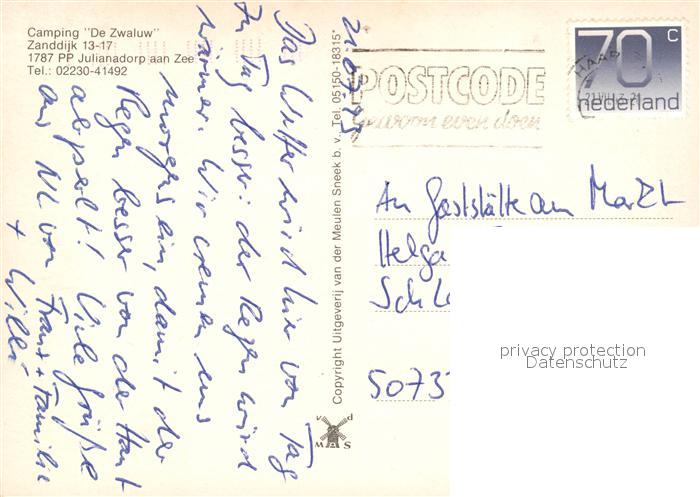 Camping "De Zwaluw"
Zanddijk 13-17
1787 PP Julianadorp aan Zee
Tel.: 02230-41492
21.07.95
Das Wetter wird hier von Tag
zu Tag besser: der Regen wird
wärmer. Wir cremen uns
morgens ein, damit der
Regen besser von der Haut
abperlt! Viele Grüße
aus NL von Franz + Familie
+ Willi
Copyright Uitgeverij van der Meulen Sneek b. v., Tel. 05150-18315*
v d
M S
POSTCODE
gewoon even doen
HAAR
70 c
nederland
An Gaststätte am Markt
Helga
5073
privacy protection
Datenschutz